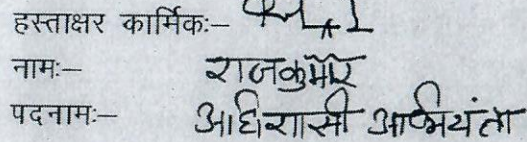 हस्ताक्षर कार्मिकः–
नामः– राजकुमार
पदनामः– अधिशासी अभियंता